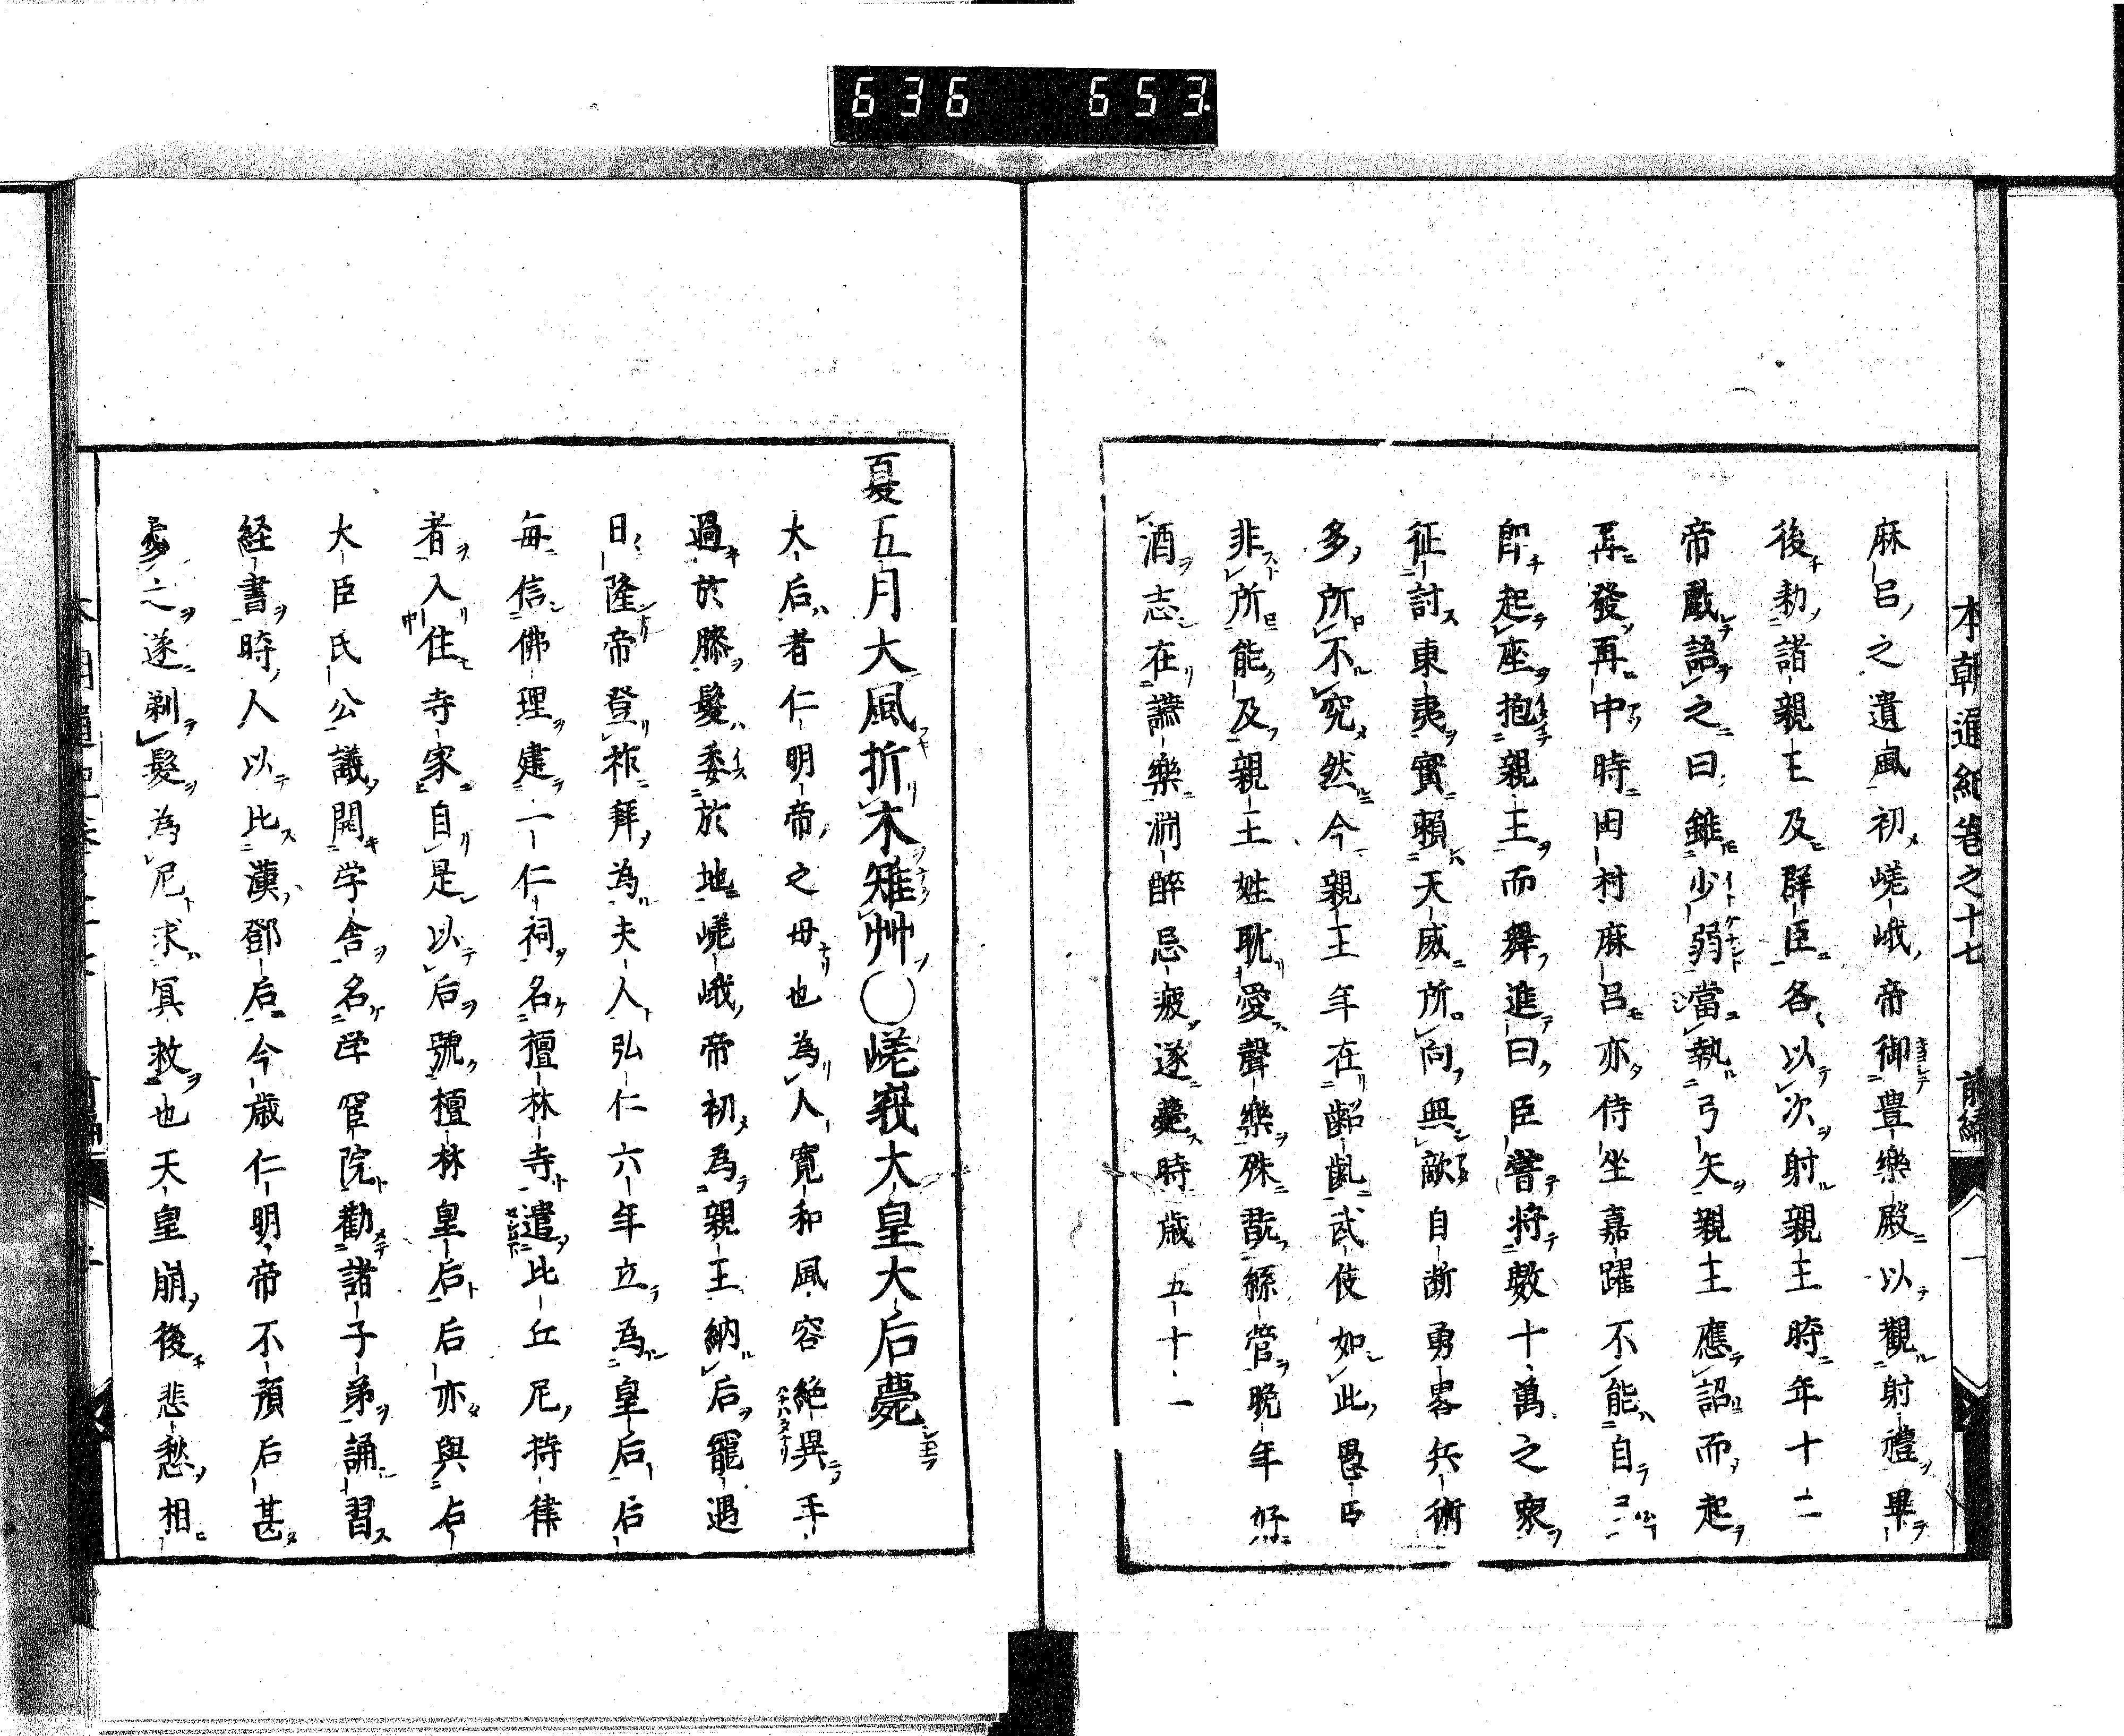 636 653
本朝通紀卷之十七 前編 一
麻呂之遺風初嵯峨帝御豊樂殿以觀射禮畢
後勅諸親王及群臣各以次射親王時年十二
帝戲語之曰雖少弱當執弓矢親王應詔而起
再發再中時田村麻呂亦侍坐嘉躍不能自已
即起座抱親王而舞進曰臣嘗將數十萬之衆
征討東夷實賴天威所向無敵自断勇畧兵術
多所不究然今親王年在齠齓武伎如此愚臣
非所能及親王姓耽愛聲樂殊翫絲管晩年好
酒志在讌樂淵醉忘疲遂薨時歳五十一
夏五月大風折木雉艸〇嵯峩大皇大后薨
大后者仁明帝之母也為人寛和風容絶異手
過於膝髮委於地嵯峨帝初為親王納后寵遇
日隆帝登祚拜為夫人弘仁六年立為皇后后
毎信佛理建一仁祠名檀林寺遣比丘尼持律
者入住寺家自是以后號檀林皇后后亦與右
大臣氏公議開学舎名学官院勸諸子弟誦習
経書時人以比漢鄧后今歳仁明帝不預后甚
之遂剃髮為尼求冥救也天皇崩後悲愁相